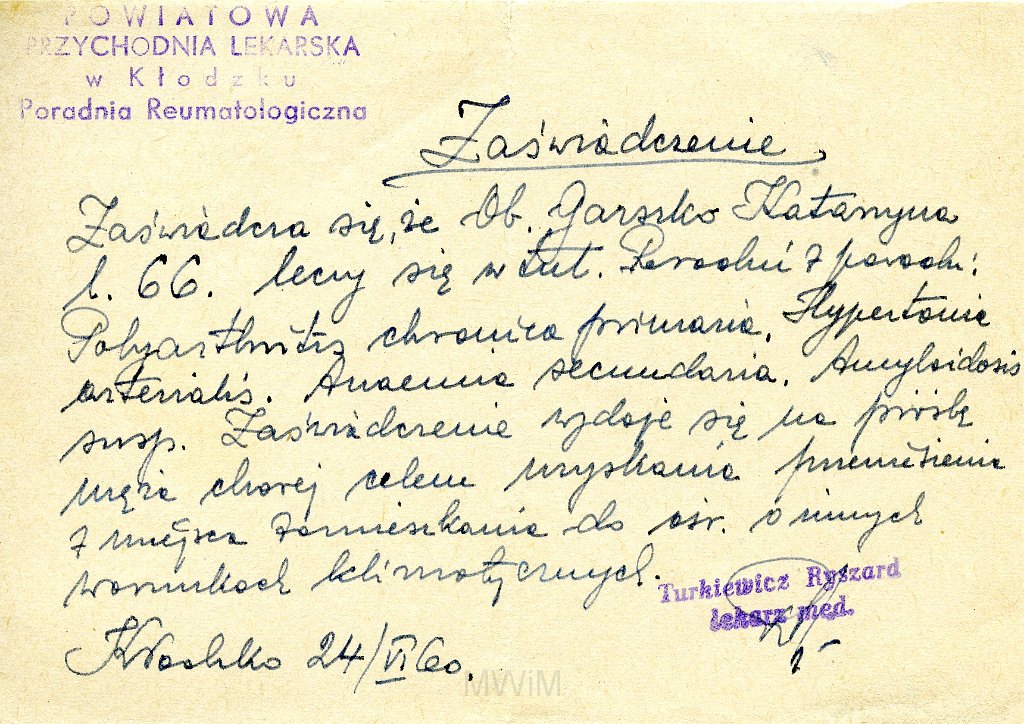 POWIATOWA
PRZYCHODNIA LEKARSKA
w Kłodzku
Poradnia Reumatologiczna
Zaświadczenie
Zaświadcza się, że Ob. Garszko Katarzyna
l. 66. leczy się w tut. Poradni z powodu:
Polyarthritis chronica primaria, Hypertonia
arterialis. Anaemia secundaria. Amyloidosis
susp. Zaświadczenie wydaje się na prośbę
męża chorej celem uzyskania przeniesienia
z miejsca zamieszkania do ośr. o innych
warunkach klimatycznych.
Turkiewicz Ryszard
lekarz med.
Kłodzko 24/VI 60.
MWiM